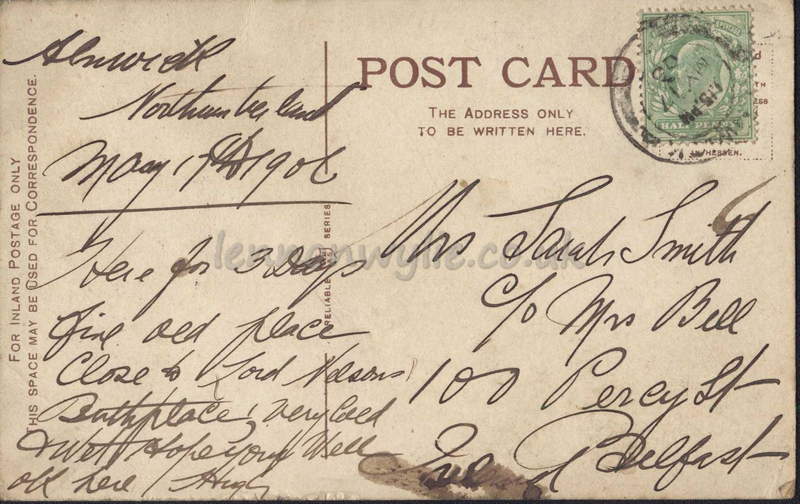 Alnwick
Northumberland
May 17th 1906
Here for 3 Days
fine old place
Close to Lord Nelsons
Birthplace, very Cold
& Wet Hope your Well
all here Hugh
FOR INLAND POSTAGE ONLY
THIS SPACE MAY BE USED FOR CORRESPONDENCE.
RELIABLE SERIES
POST CARD
THE ADDRESS ONLY
TO BE WRITTEN HERE.
HALF PENNY
MY 17
06
HESSEN.
Mrs Sarah Smith
c/o Mrs Bell
100 Percy St
Belfast
Ireland
lennonwylie.co.uk